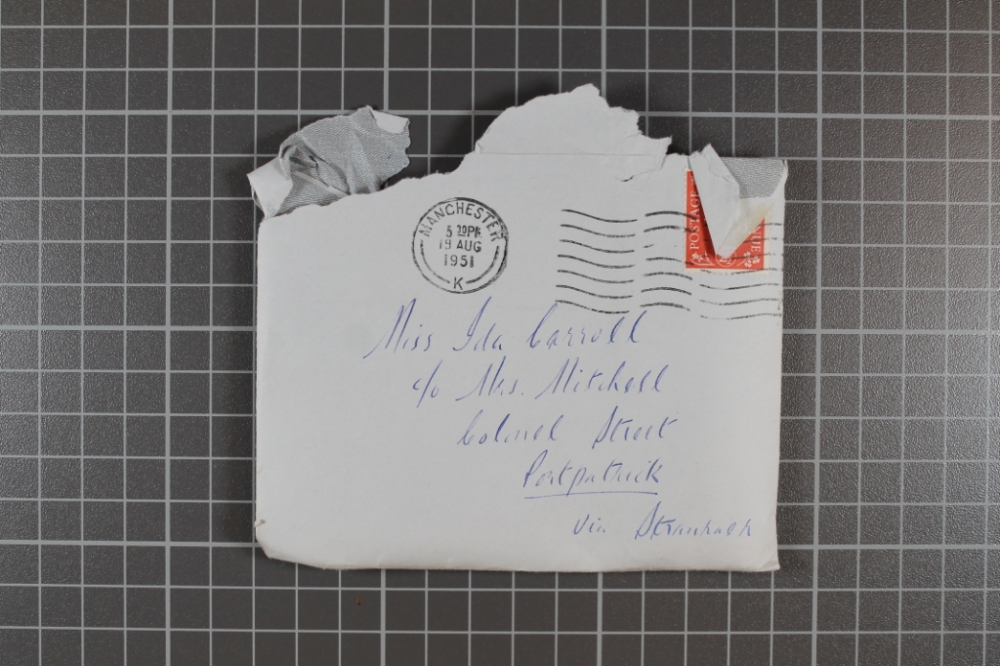 MANCHESTER
5 30PM
19 AUG
1951
K
POSTAGE
UE
Miss Ida Carroll
c/o Mrs. Mitchell
Colonel Street
Portpatrick
via Stranraer